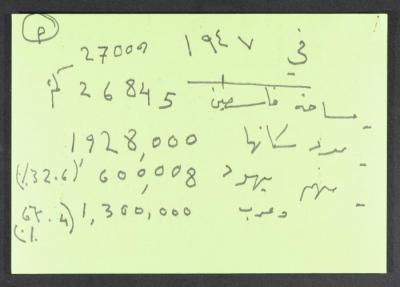 P
27009
في ١٩٤٧
مساحة فلسطين 26845 كم
عدد سكانها 1928,000
منهم يهود 600,008 (٪32.6)
وعرب 1,300,000 (67.4٪)